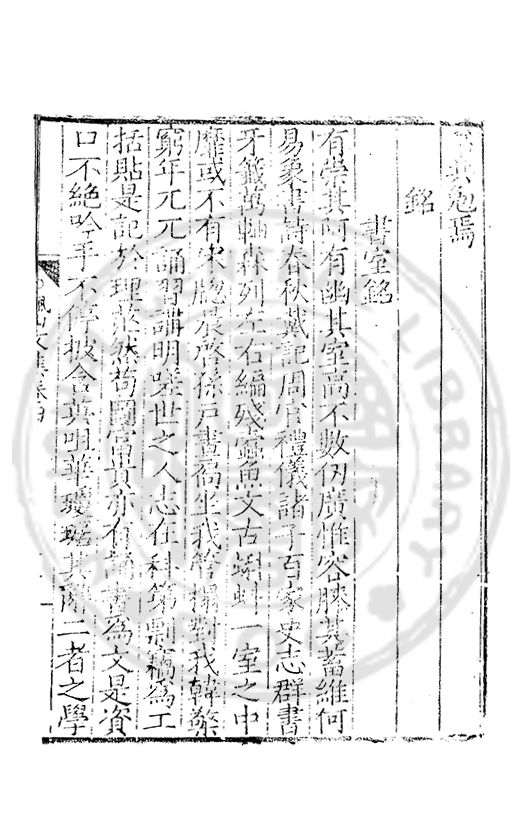 其勉焉
銘
書室銘
有崇其阿有幽其室高不數仞廣惟容膝其蓄維何
易象書詩春秋戴記周官禮儀諸子百家史志群書
牙籤萬軸森列左右編殘蠹魚文古蝌蚪一室之中
靡或不有宋牕晨啓孫戸晝扃坐我管榻對我韓檠
窮年兀兀誦習講明嗟世之人志在科第剽竊為工
括貼是記於理茫然苟圖富貴亦有誦書為文是資
口不絶吟手不停披含英咀華璦琚其辭二者之學
文集卷四